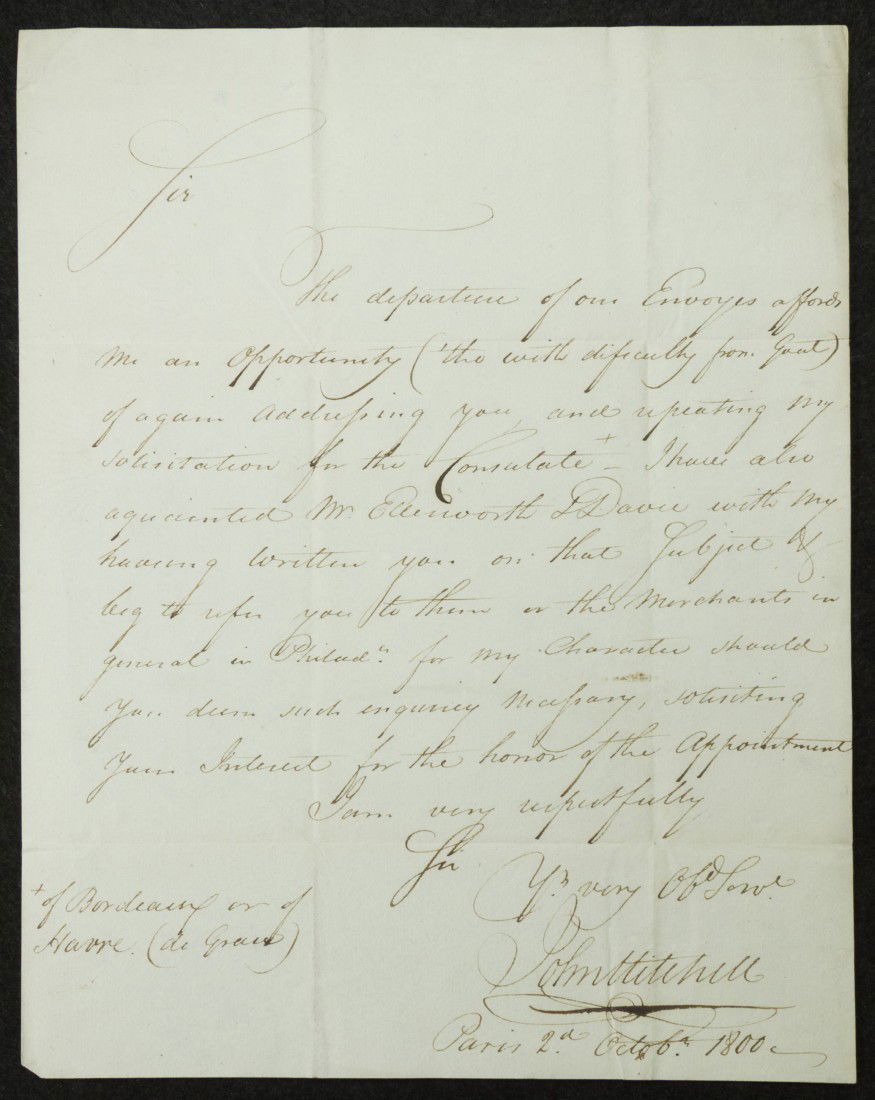 Sir
The departure of our Envoyes affords
me an Opportunity ('tho with dificulty from Gout)
of again Addressing you, and repeating my
solisitation for the Consulate + – I have also
aquainted Mr. Ellsworth & Davie with my
having written you on that Subject &
beg to refer you to them or the Merchants in
general in Philada. for my Character should
you deem such enquiery Necessary, solisiting
your Interest for the honor of the Appointment
I am very respectfully
Sir
Yr. very Obd Servt.
John Mitchell
Paris 2d Octobr. 1800
+ of Bordeaux or of
Havre (de Grace)